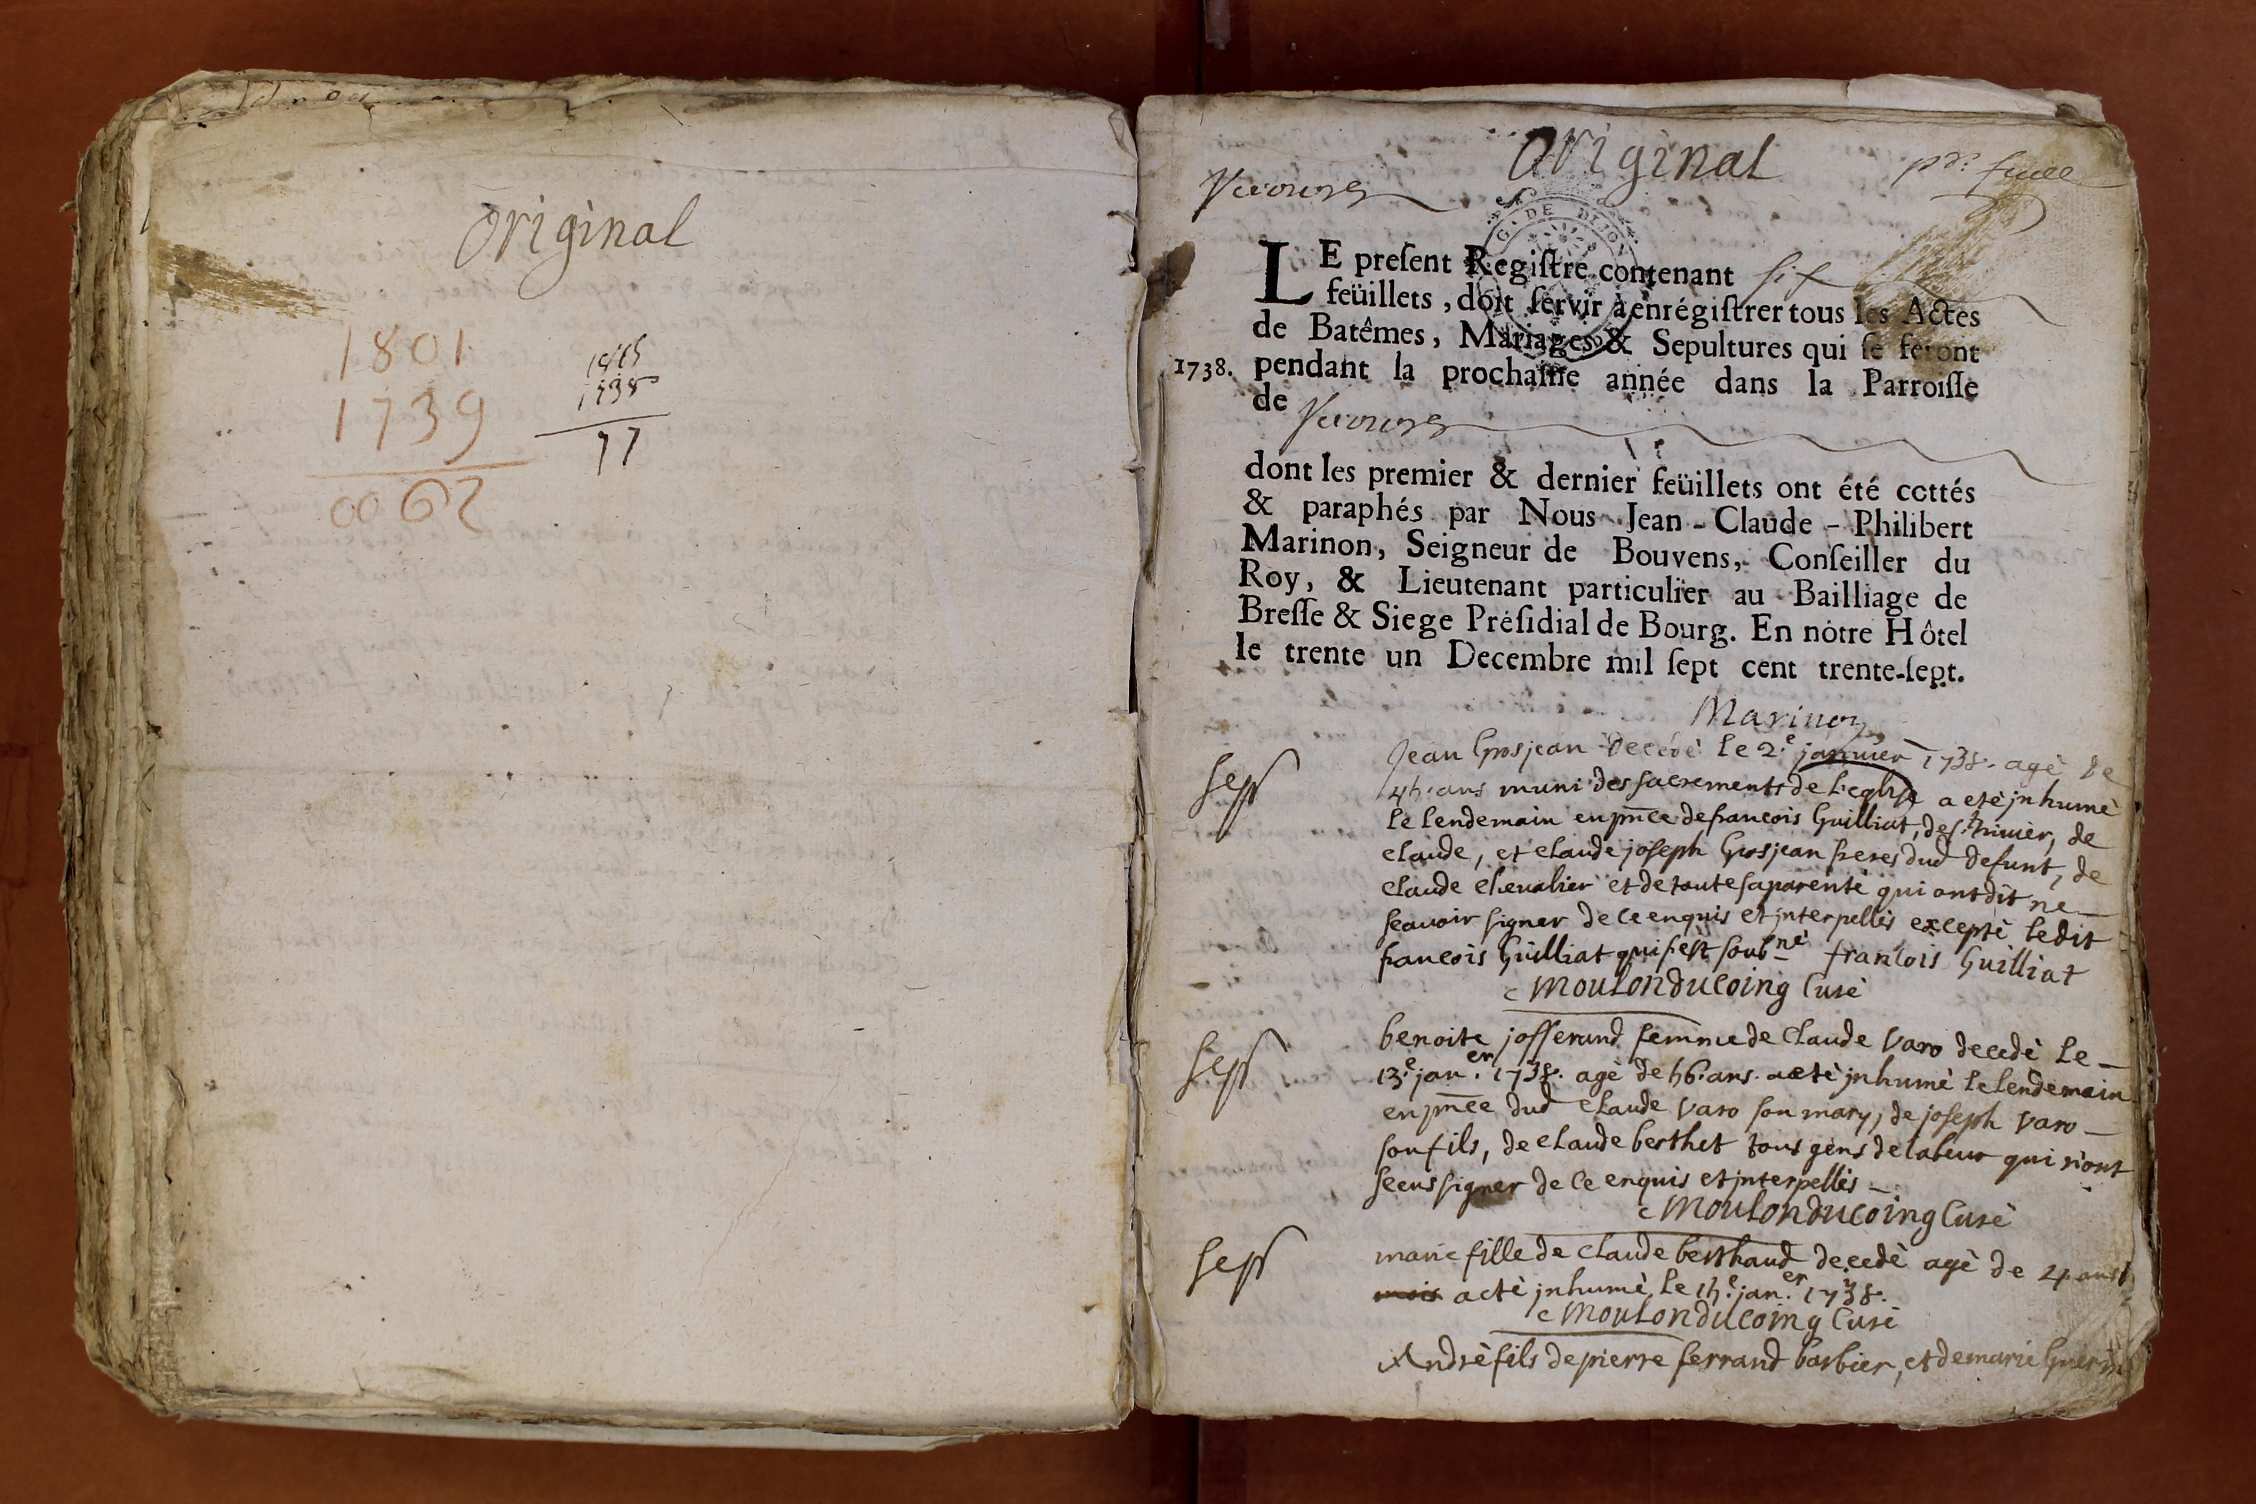 original
1801
1739
0062
1815
1738
77
original
Vecours
pr. fuille
G. DE DIJON
LE preſent Regiſtre contenant six
feüillets, doit ſervir à enrégiſtrer tous les Actes
de Batêmes, Mariages & Sepultures qui ſe feront
1738. pendant la prochaine année dans la Parroiſſe
de Vecours
dont les premier & dernier feüillets ont été cottés
& paraphés par Nous Jean-Claude-Philibert
Marinon, Seigneur de Bouvens, Conſeiller du
Roy, & Lieutenant particulier au Bailliage de
Breſſe & Siege Préſidial de Bourg. En nôtre Hôtel
le trente un Decembre mil ſept cent trente-ſept.
Marinon
Sep
Jean Grosjean decedè le 2e janvier 1738. agè de
45. ans muni des sacrements de l'eglise a etè jnhumè
le lendemain en pnce de francois Guilliat, de st. trivier, de
claude, et claude joseph Grosjean freres dud defunt, de
claude chevalier et de toute sa parentè qui ont dit ne
scavoir signer de ce enquis et jnterpellès exceptè ledit
francois Guilliat qui s'est soubnè francois Guilliat
Moulonducoing Curè
Sep
benoite josserand femme de claude Varo decedè le
13e jan.er 1738. agè de 56. ans. a etè jnhumè le lendemain
en pnce dud claude varo son mary, de joseph varo
son fils, de claude berthet tous gens de labeur qui n'ont
sceus signer de ce enquis et jnterpellès
Moulonducoing Curè
Sep
marie fille de claude berthaud decedè agè de 4 ans
mois a etè jnhumè le 15e jan.er 1738.
Moulonducoing Curè
Andrè fils de pierre ferrand barbier, et de marie Guerin